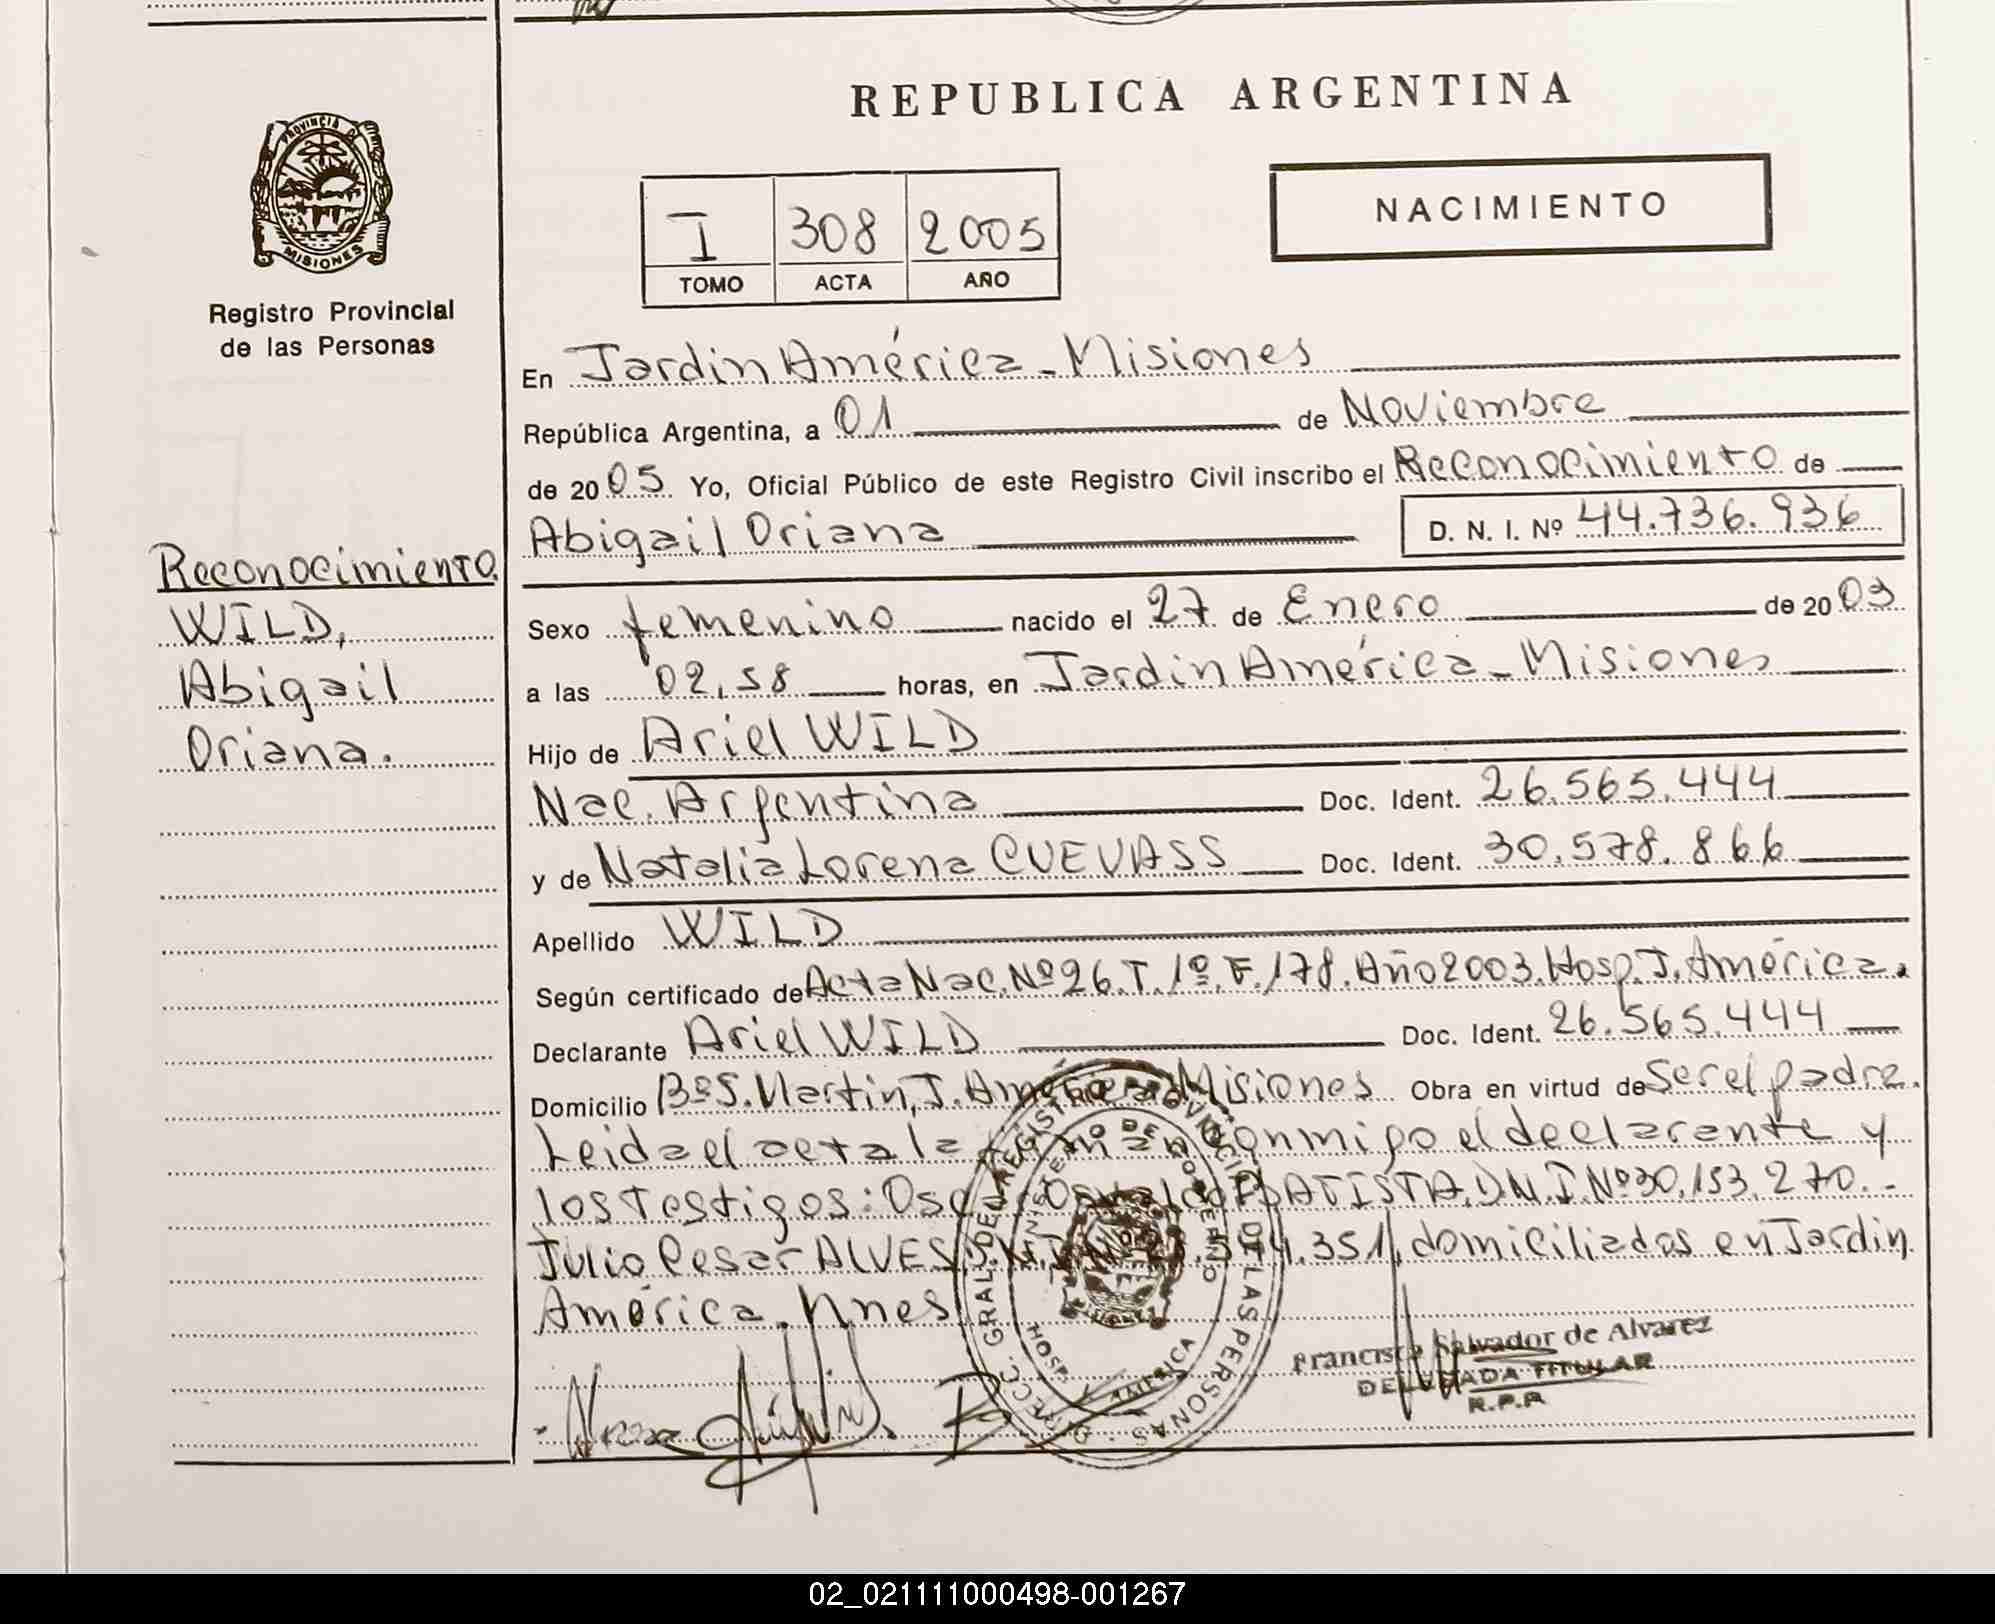 REPUBLICA ARGENTINA
PROVINCIA DE
MISIONES
Registro Provincial
de las Personas
I 308 2005
TOMO ACTA AÑO
NACIMIENTO
Reconocimiento
WILD,
Abigail
Oriana.
En Jardin América - Misiones
República Argentina, a 01 de Noviembre
de 2005 Yo, Oficial Público de este Registro Civil inscribo el Reconocimiento de
Abigail Oriana D. N. I. Nº 44.736.936
Sexo femenino nacido el 27 de Enero de 2003
a las 02,58 horas, en Jardin América - Misiones
Hijo de Ariel WILD
Nac. Argentina Doc. Ident. 26.565.444
y de Natalia Lorena CUEVASS Doc. Ident. 30.578.866
Apellido WILD
Según certificado de Acta Nac. Nº 26. T. 1º. F. 178. Año 2003. Hosp. J. América.
Declarante Ariel WILD Doc. Ident. 26.565.444
Domicilio Bº S. Martin, J. América Misiones Obra en virtud de Ser el padre.
Leida el acta la firman conmigo el declarante y
los Testigos: Osvaldo BATISTA. D.N.I. Nº 30.153.270. -
Julio Cesar ALVES D.N.I. 594.351, domiciliados en Jardin
América. Mnes
DIRECC. GRAL. DEL REGISTRO PROVINCIAL DE LAS PERSONAS
MINISTERIO DE GOBIERNO
HOSP. AMERICA
Francisca Salvador de Alvarez
DELEGADA TITULAR
R.P.P.
02_021111000498-001267